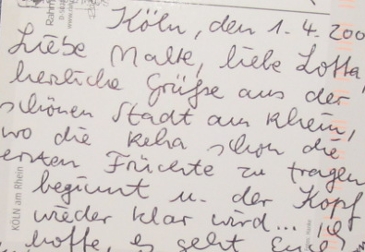 Köln, den 1.4.200
Liebe Malte, liebe Lotta,
herzliche Grüße aus der
schönen Stadt am Rhein,
wo die Reha schon die
ersten Früchte zu tragen
beginnt u. der Kopf
wieder klar wird... Ich
hoffe, es geht Eu
KÖLN am Rhein